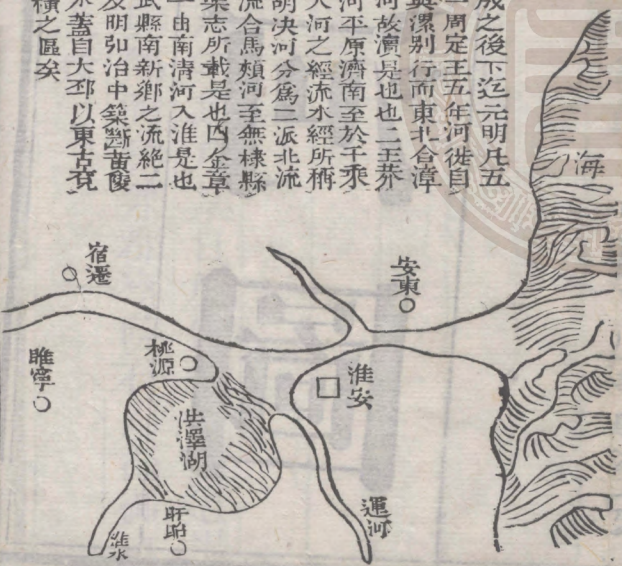 成之後下迄元明凡五
一周定王五年河徙自
與漯别行而東北合漳
河故瀆是也也二王莽
河平原濟南至於千乘
大河之經流水經所稱
胡决河分爲二派北流
流合馬頰河至無棣縣
渠志所載是也四金章
一由南清河入淮是也
武縣南新鄉之流絶二
及明弘治中築斷黄陵
水蓋自大伾以東古兗
積之區矣
海
安東
宿遷
淮安
桃源
睢寧
洪澤湖
運河
盱眙
淮水